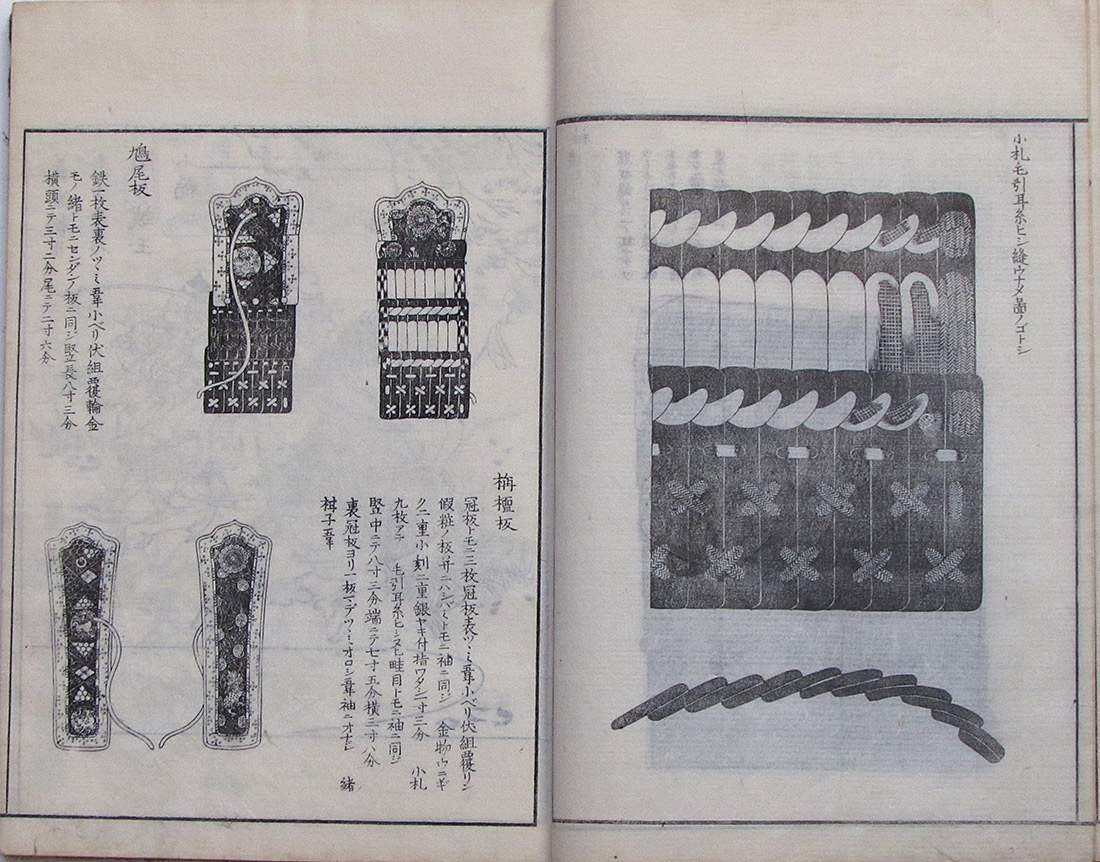 小札毛引耳糸ヒシ縫ウナメ圖ノゴトシ
栴檀板
冠板トモニ三枚冠板表ツヽミ韋小ベリ伏組覆リン
假粧ノ板并ニハシバミトモニ袖ニ同ジ 金物ウニギ
ク二重小刻二重銀ヤキ付指ワタシ二寸三分 小札
九枚アテ 毛引耳糸ヒシヌヒ畦目トモニ袖ニ同ジ
竪中ニテ八寸三分端ニテ七寸五分横三寸八分
裏冠板ヨリ一板マデツヽミオロシ韋袖ニオナシ 緒
鳩尾板
鉄一枚表裏ノツヽミ韋小ベリ伏組覆輪金
モノ緒トモニセンダンノ板ニ同ジ竪長八寸三分
横頭ニテ三寸二分尾ニテ二寸六分